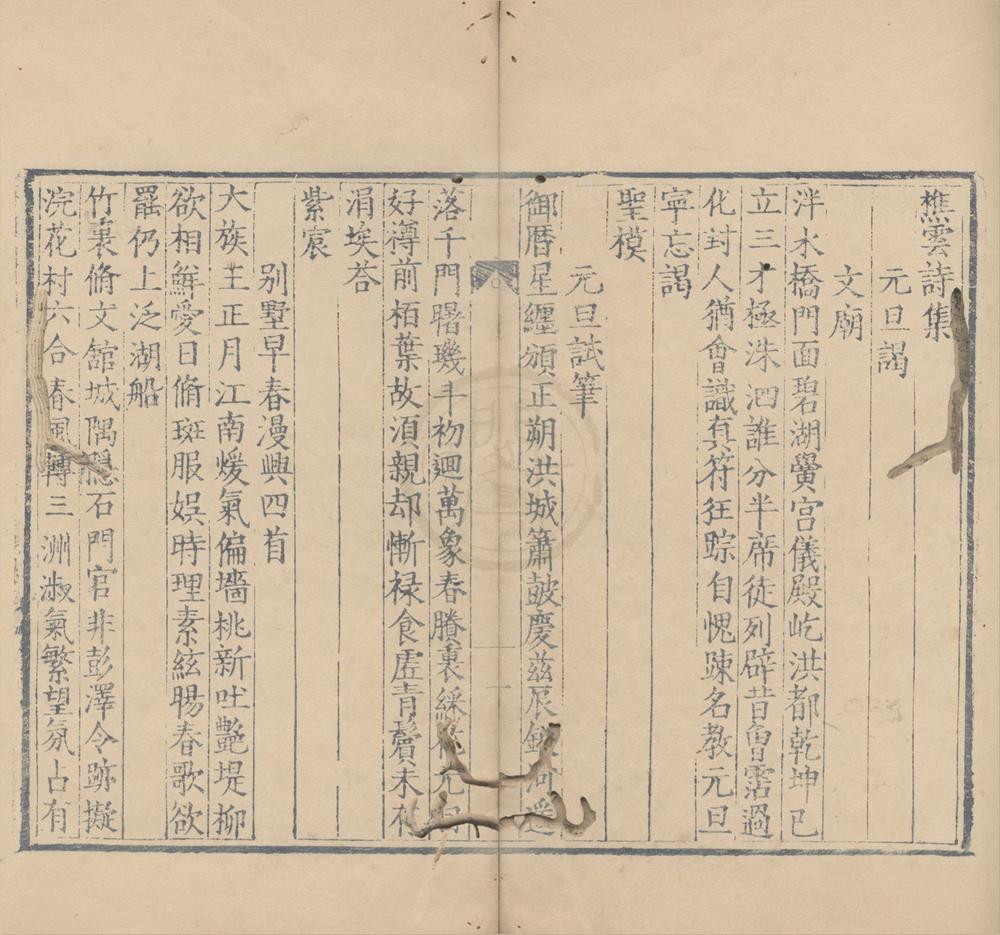 樵雲詩集
元旦謁
文廟
泮水橋門面碧湖黌宮儀殿屹洪都乾坤已
立三才極洙泗誰分半席徒列辟昔曾霑過
化封人猶會識真符狂踪自愧踈名教元旦
寧忘謁
聖模
元旦試筆
御曆星纏頒正朔洪城簫皷慶茲辰銀河遥
落千門曙璣斗初迴萬象春賸裏綵花元
好罇前栢葉故湏親却慚禄食虛青鬢未有
涓埃荅
紫宸
别墅早春漫興四首
大族王正月江南煖氣偏墻桃新吐艷堤柳
欲相鮮愛日脩斑服娛時理素絃賜春歌欲
罷仍上泛湖船
竹裏脩文舘城隅隱石門官非彭澤令跡擬
浣花村六合春風轉三洲淑氣繁望氛占有